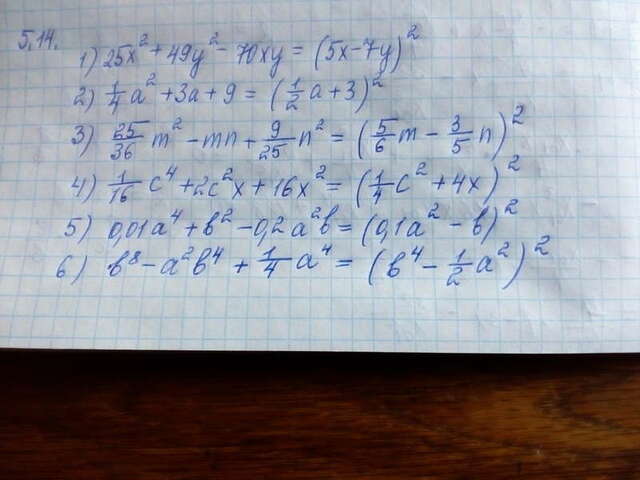 5.14.
1) 25x² + 49y² - 70xy = (5x - 7y)²
2) 1/4 a² + 3a + 9 = (1/2 a + 3)²
3) 25/36 m² - mn + 9/25 n² = (5/6 m - 3/5 n)²
4) 1/16 c⁴ + 2c²x + 16x² = (1/4 c² + 4x)²
5) 0,01a⁴ + b² - 0,2a²b = (0,1a² - b)²
6) b⁸ - a²b⁴ + 1/4 a⁴ = (b⁴ - 1/2 a²)²